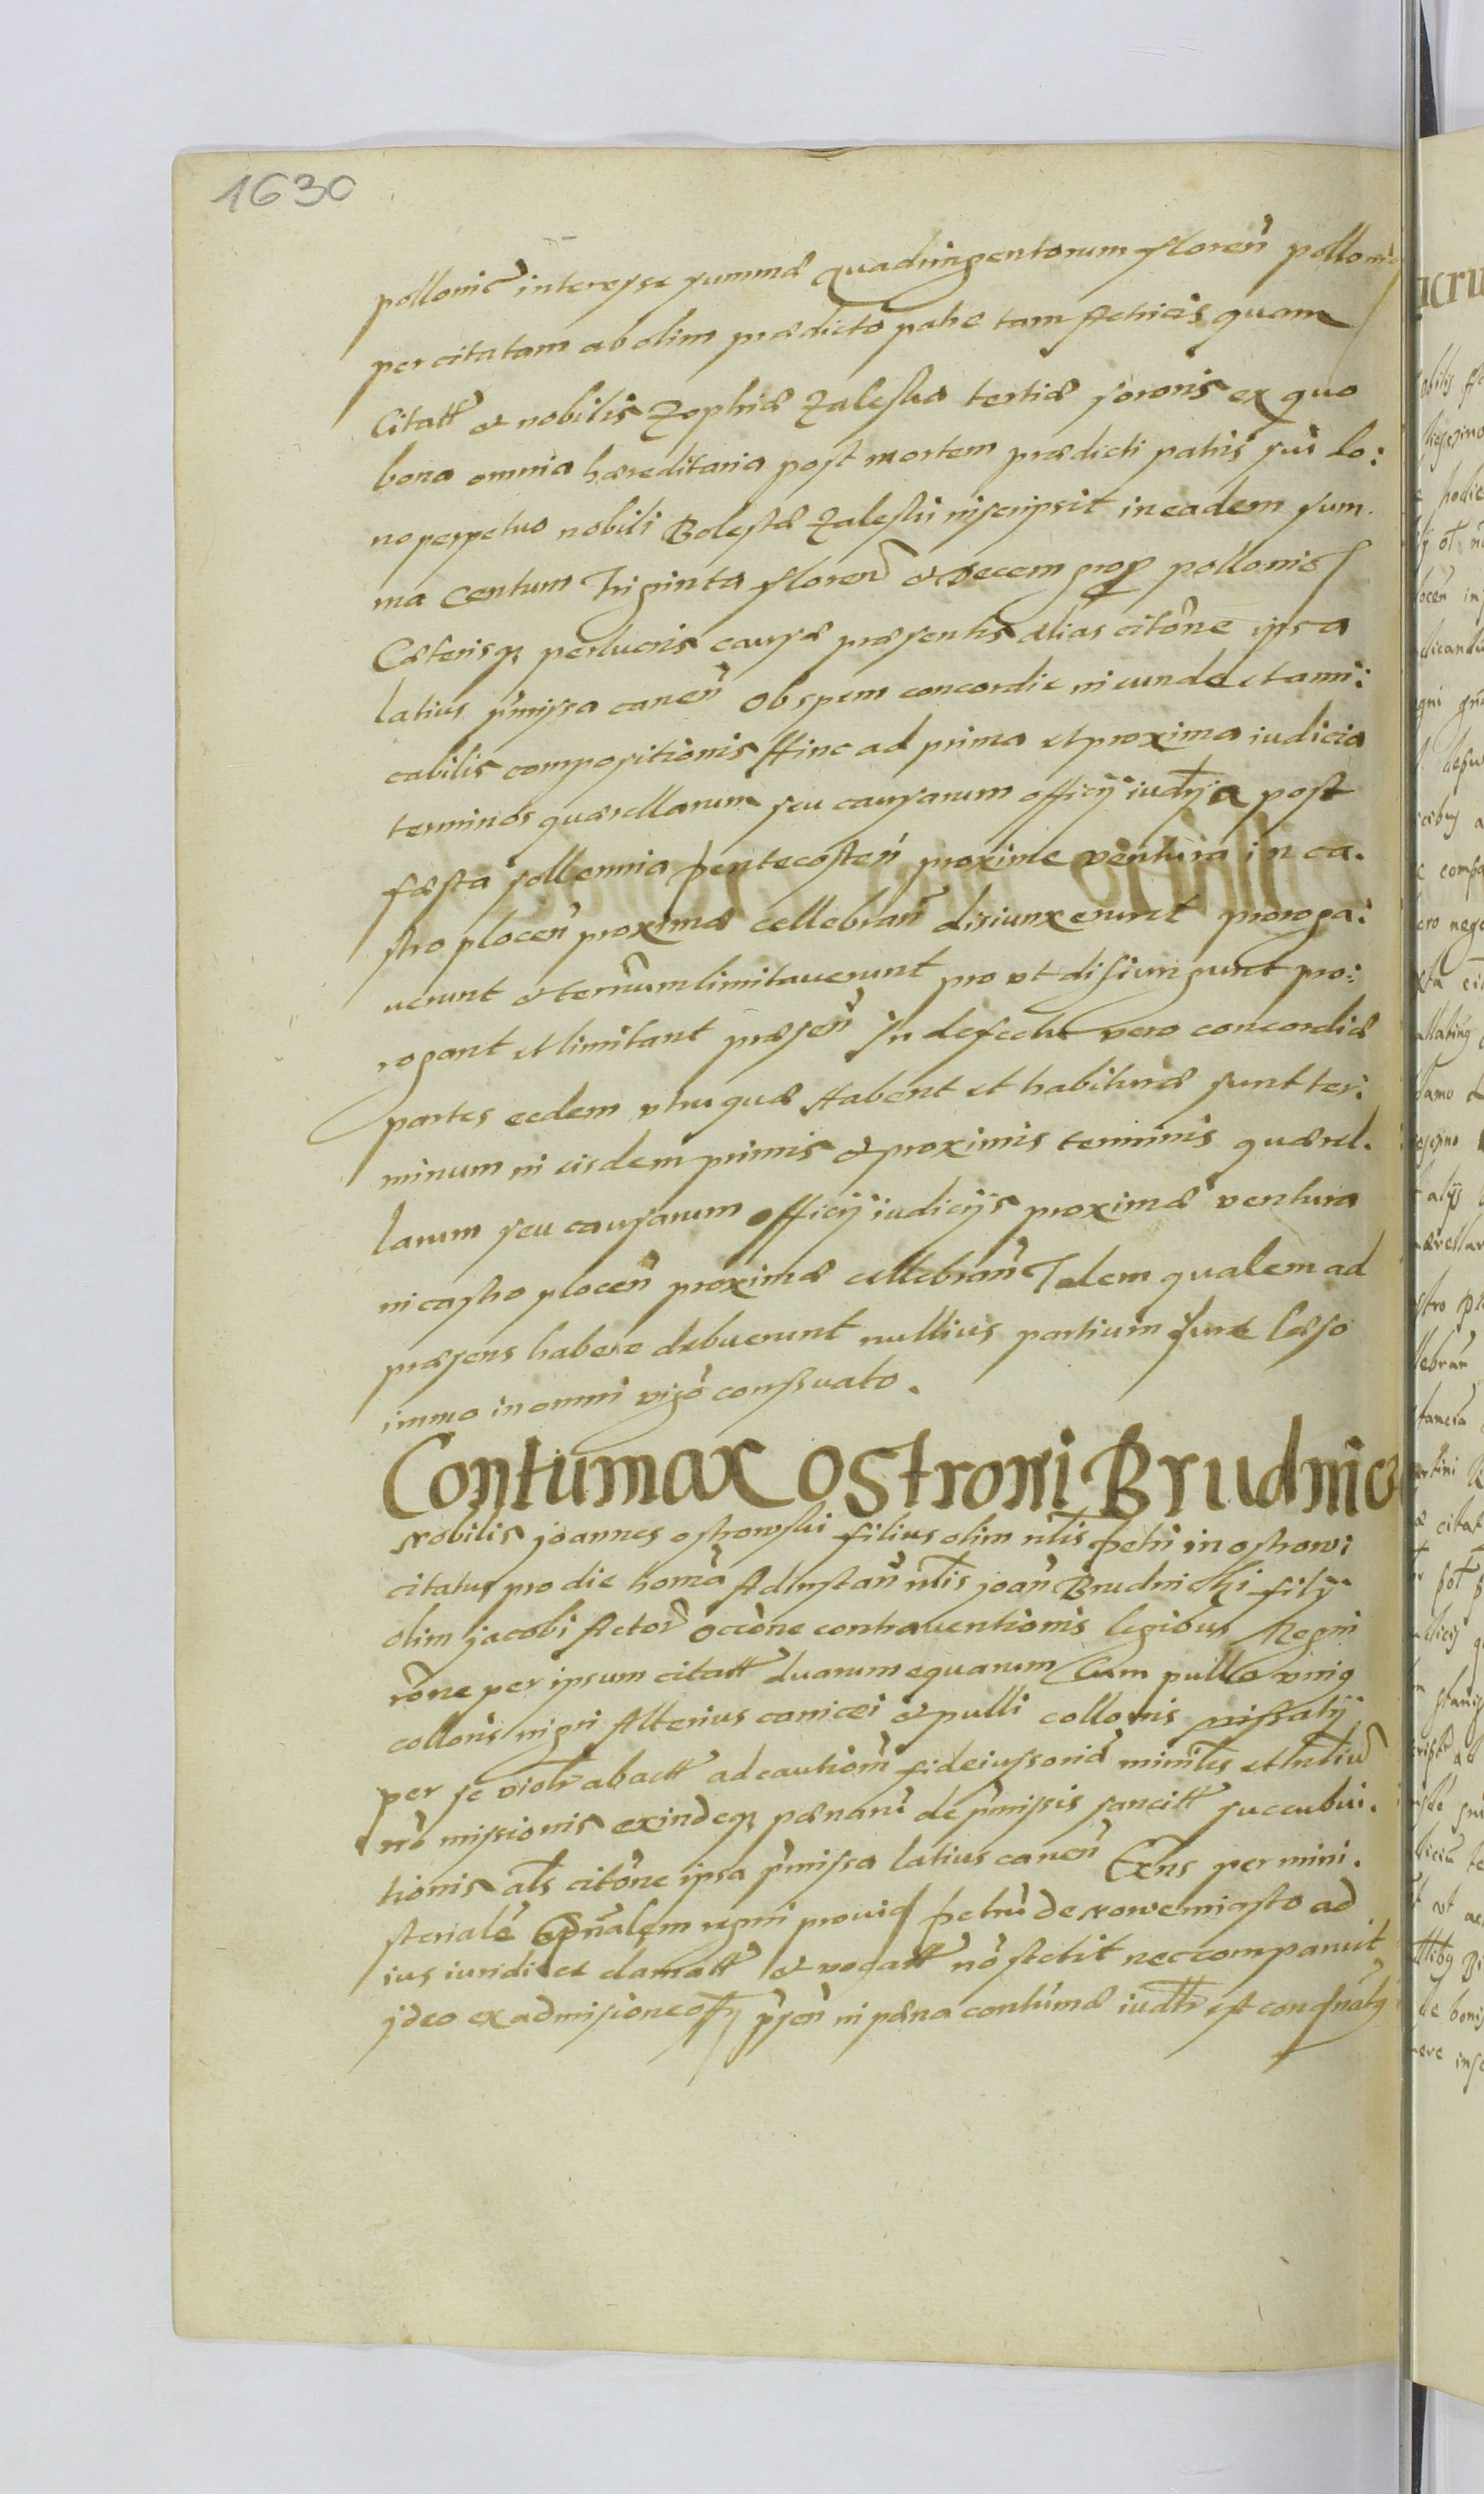 1630
pollonic̃ interesse summæ quadringentorum floren̄ pollonic
per citatam ab olim prædicto patre tam Actricis quam
Citatt̃ et nobilis Zophiæ Zaleska tertiæ sororis ex quo
bona omnia hæreditaria post mortem prædicti patris sui do:
no perpetuo nobili Bolestæ Zaleski inscripsit in eadem sum.
ma Centum Triginta floren̄ et decem gros pollonic
Cæterisq3 per lucris causæ præsentis alias citōne ipsa
latius p̄missa canen̄ Ob spem concordie ni cunde et ami:
cabilis compositionis Hinc ad prima et proxima iudicia
terminos quærellarum seu causarum officij iudija post
fæsta sollennia pentecosten̄ proxime ventura in ca.
stro plocen̄ proximæ cellebran̄ disiunxerunt proroga:
uerunt et ternum limitauerunt pro vt disiungunt pro:
rogant et limitant præsen̄ In defectu vero concordiæ
partes eedem vtræquæ Habent et habituræ sunt ter:
minum ni eisdem primis et proximis terminis quærel.
larum seu causarum officij iudicijs proximæ ventura
ni castro plocen̄ proximæ cellebran̄ Talem qualem ad
præsens habere debuerunt nullius partium Iure læso
immo in omni vigō conseruato.
Contumax Ostrowi Brudnic3
Nobilis joannes ostrowski filius olim nl̃is petri in ostrow:
citatus pro die homa Ad instan̄ nl̃is joan̄ Brudnicki filij
olim jacobi Actor̃ occōne contrauentionis legibus Regni
rōne per ipsum citatt̃ duarum equarum Cum pullo vnig
colloris nigri Alterius canicei et pulli colloris
per se violr̃ abactt̃ ad cautiom̄ fideiussoriā minil̃is et
nrō missionis exindeq3 pænarū de p̄missis sancitt̃ succubui.
tionis al̃s citōne ipsa p̄missa latius canen̄ Exn̄s per mini.
sterialē Gn̄alem regni prouid petrū de nowemiasto ad
ius iuridice clamatt̃ et vocatt̃ nō stetit nec comparuit
jdeo ex admisione offj p̄sen̄ ni pæna contumæ iudl̃r est condn̄atus